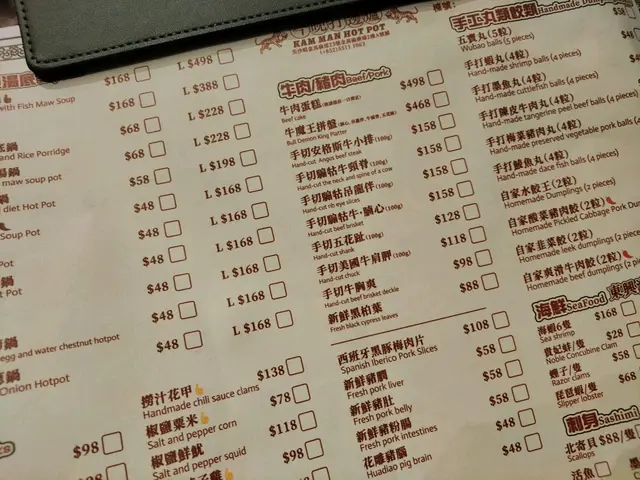 KAM MAN HOT POT
$168 L $498
with Fish Maw Soup
$168 L $388
$68 L $228
and Rice Porridge
$68 L $228
maw soup pot
$58 L $198
diet Hot Pot
$48 L $168
Soup Pot
$48 L $168
$48 L $168
Pot
$48 L $168
egg and water chestnut hotpot
$48 L $168
Onion Hotpot
$48 L $168
$98
撈汁花甲 $138
Handmade chili sauce clams
椒鹽粟米 $78
Salt and pepper corn
椒鹽鮮魷 $118
Salt and pepper squid
$98
牛肉/豬肉 Beef/Pork
牛肉蛋糕 $498
Beef cake
牛魔王拼盤 $468
Bull Demon King Platter
手切安格斯牛小排 (100g) $158
Hand-cut Angus beef steak
手切騸牯牛頸脊 (100g) $158
Hand-cut the neck and spine of a cow
手切騸牯吊龍伴 (100g) $158
Hand-cut rib eye slices
手切騸牯牛·腩心 (100g) $158
Hand-cut beef brisket
手切五花趾 (100g) $128
Hand-cut shank
手切美國牛肩胛 (100g) $118
Hand-cut chuck
手切牛胸爽 $98
Hand-cut beef brisket deckle
新鮮黑柏葉 $88
Fresh black cypress leaves
西班牙黑豚梅肉片 $108
Spanish Iberico Pork Slices
新鮮豬膶 $58
Fresh pork liver
新鮮豬肚 $58
Fresh pork belly
新鮮豬粉腸 $48
Fresh pork intestines
花雕豬腦 $48
Huadiao pig brain
手工丸類餃類 Handmade
五寶丸 (5粒)
Wubao balls (5 pieces)
手打蝦丸 (4粒)
Hand-made shrimp balls (4 pieces)
手打墨魚丸 (4粒)
手打陳皮牛肉丸 (4粒)
Hand-made tangerine peel beef balls (4 pieces)
手打梅菜豬肉丸 (4粒)
Hand-made preserved vegetable pork balls
手打鯪魚丸 (4粒)
Hand-made dace fish balls (4 pieces)
自家水餃王 (2粒)
Homemade Dumplings (2 pieces)
自家酸菜豬肉餃 (2粒)
Homemade Pickled Cabbage Pork
自家韭菜餃 (2粒)
Homemade leek dumplings (2
自家爽滑牛肉餃 (2粒)
Homemade beef dumplings (2
海鮮 SeaFood 東興
海蝦6隻 $168
Sea shrimp
貴妃蚌/隻 $28
Noble Concubine Clam
蟶子/隻 $68
Razor clams
琵琶蝦/隻 $68
Slipper lobster
刺身 Sashimi
北寄貝 $88/
Scallops
活魚